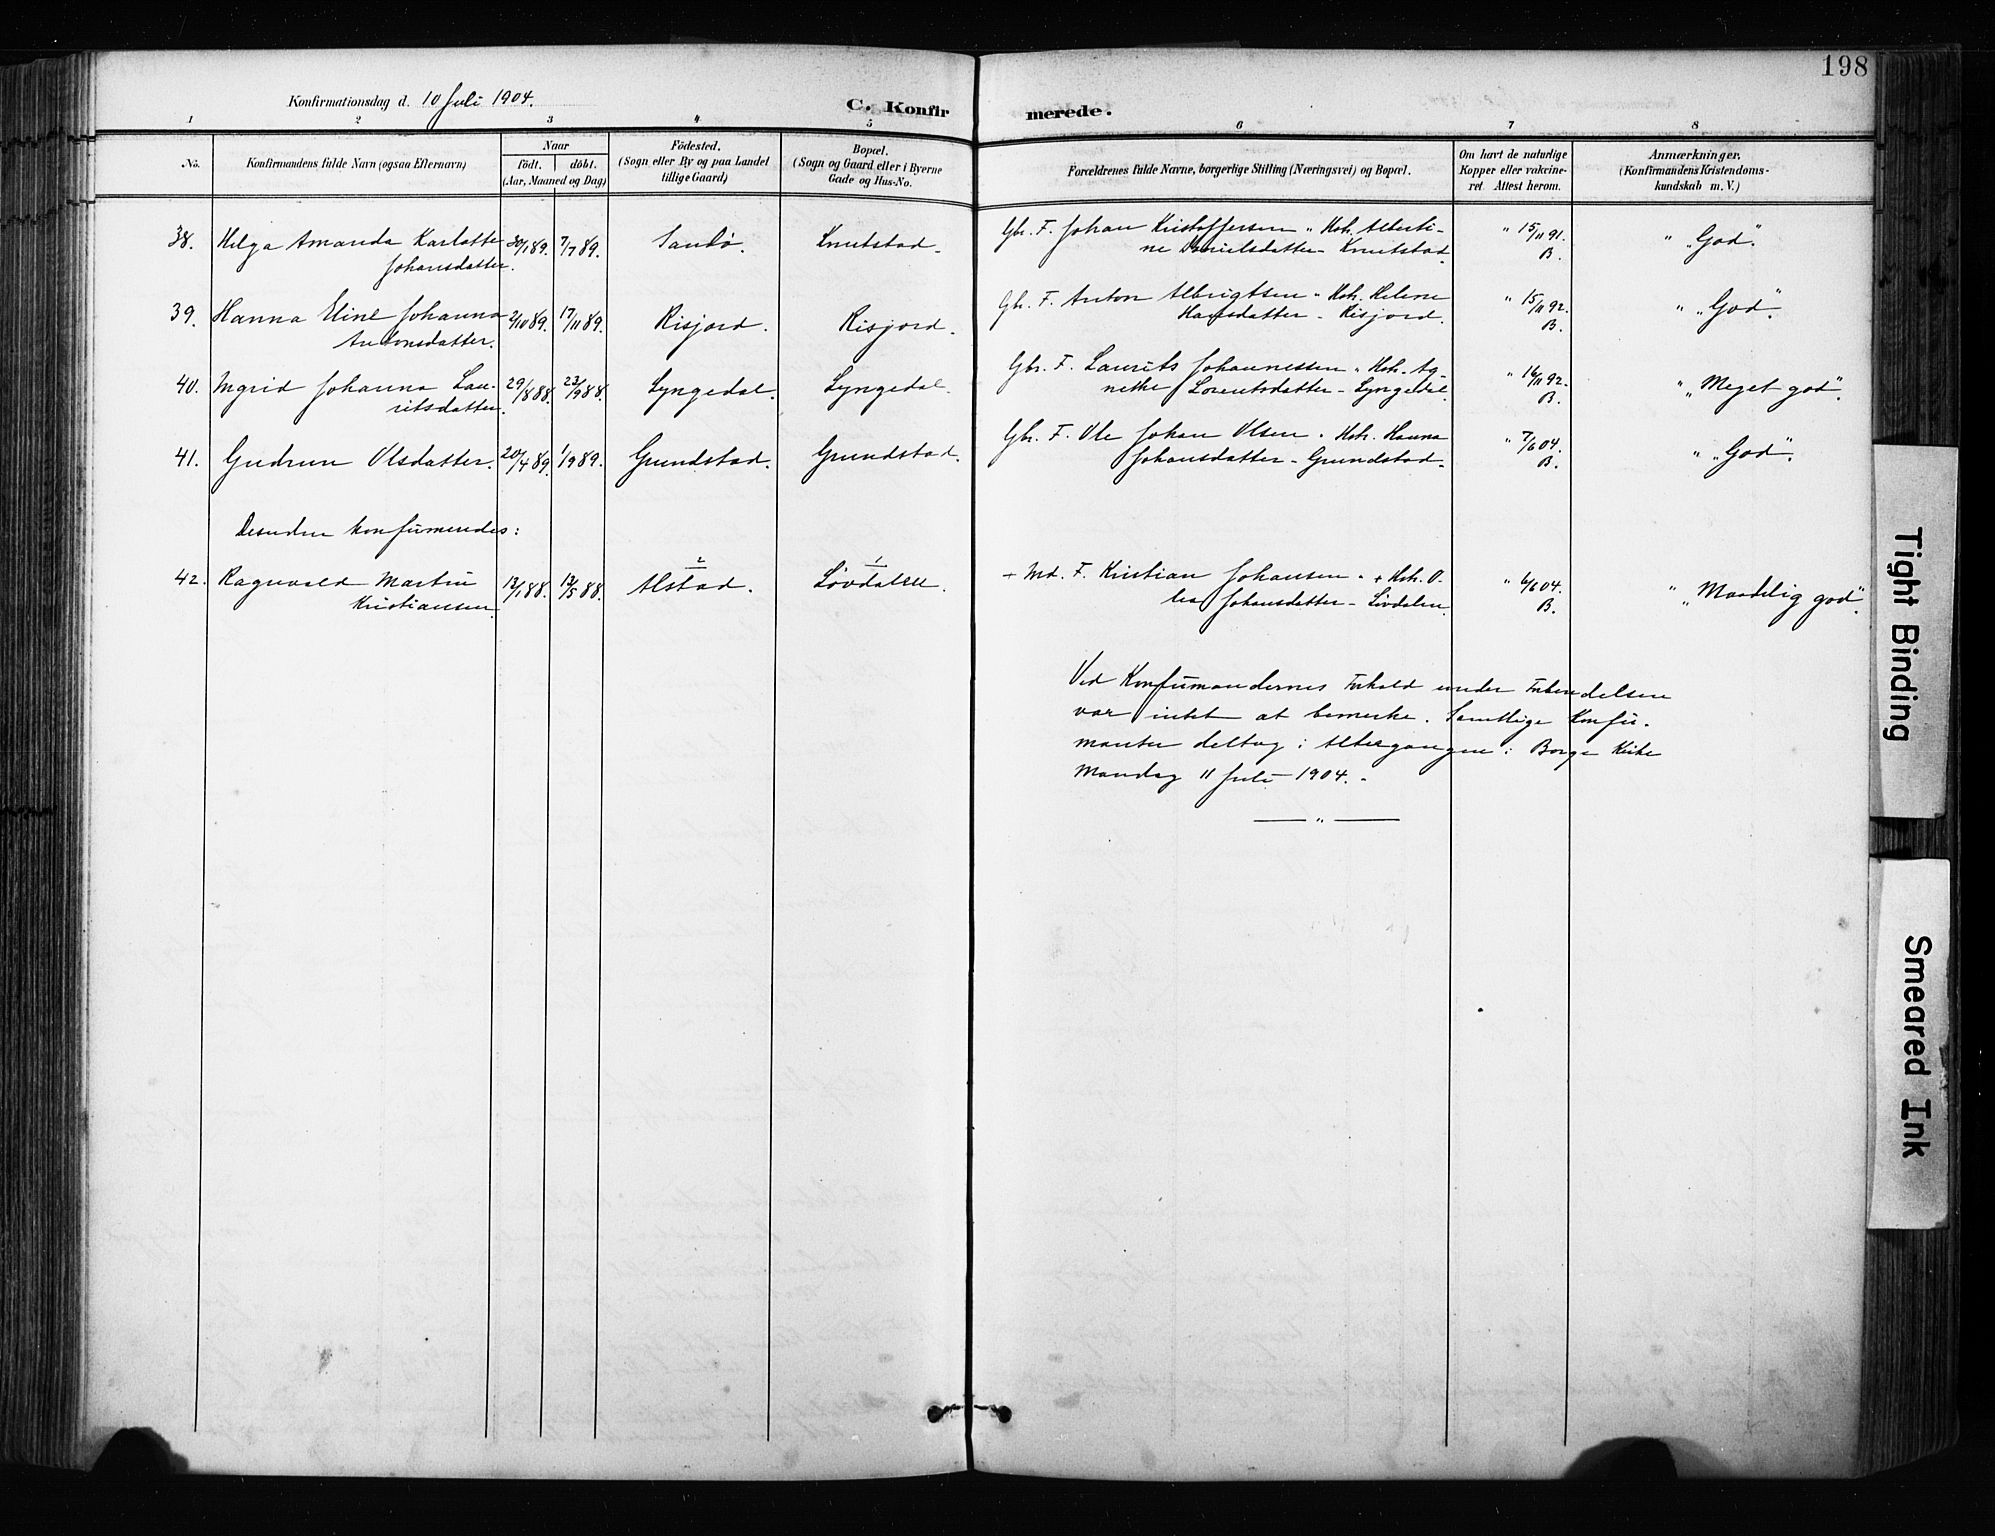 198
Konfirmationsdag d. 10 Juli 1904.
C. Konfirmerede.
1 2 3 4 5 6 7 8
No.
Konfirmandens fulde Navn (ogsaa Efternavn)
Naar
født. døbt.
(Aar, Maaned og Dag)
Fødested.
(Sogn eller By og paa Landet
tillige Gaard)
Bopæl.
(Sogn og Gaard eller i Byerne
Gade og Hus-No.
Forældrenes fulde Navne, borgerlige Stilling (Næringsvei) og Bopæl.
Om havt de naturlige
Kopper eller vakcine-
ret. Attest herom.
Anmærkninger.
(Konfirmandens Kristendoms-
kundskab m. V.)
38. Helga Amanda Karlotte 7/7 89. Sandø. Knutstad. Gbr. F. Johan Kristoffersen " Hstr. Alberti- " 15/11 91. " "God".
Johansdatter. ne Danielsdatter - Knutstad. B.
39. Hanna Eline Johanna 2/10 89. 17/11 89. Risjord. Risjord. Gbr. F. Anton Albrigtsen " Hstr. Helene " 15/11 92. " "God".
Antonsdatter. Hansdatter - Risjord. B.
40. Ingrid Johanna Lau- 29/8 88. 23/9 88. Lyngedal. Lyngedal. Gbr. F. Laurits Johannessen " Hstr. Ag- " 16/11 92.
ritsdatter. nethe Lorentsdatter - Lyngedal. B. "Meget god".
41. Gudrun Olsdatter. 20/4 89. 1/9 89. Grundstad. Grundstad. Gbr. F. Ole Johan Olsen " Hstr. Hanna " 7/6 04. " "God".
Johansdatter - Grundstad. B.
Desuden konfirmendes:
2 1
42. Ragnvald Martin 13/1 88. 13/5 88. Alstad. Løvdalen. + Md. F. Kristian Johansen " + Hstr. O- " 6/6 04. " "Maadelig god".
Kristiansen. lea Johansdatter - Løvdalen. B.
Ved Konfirmandernes Forhold under Forberedelsen
var intet at bemerke. Samtlige Konfir-
manter deltog i Altergangen i Borge Kirke
Mandag 11 Juli 1904. -
Tight Binding
Smeared Ink